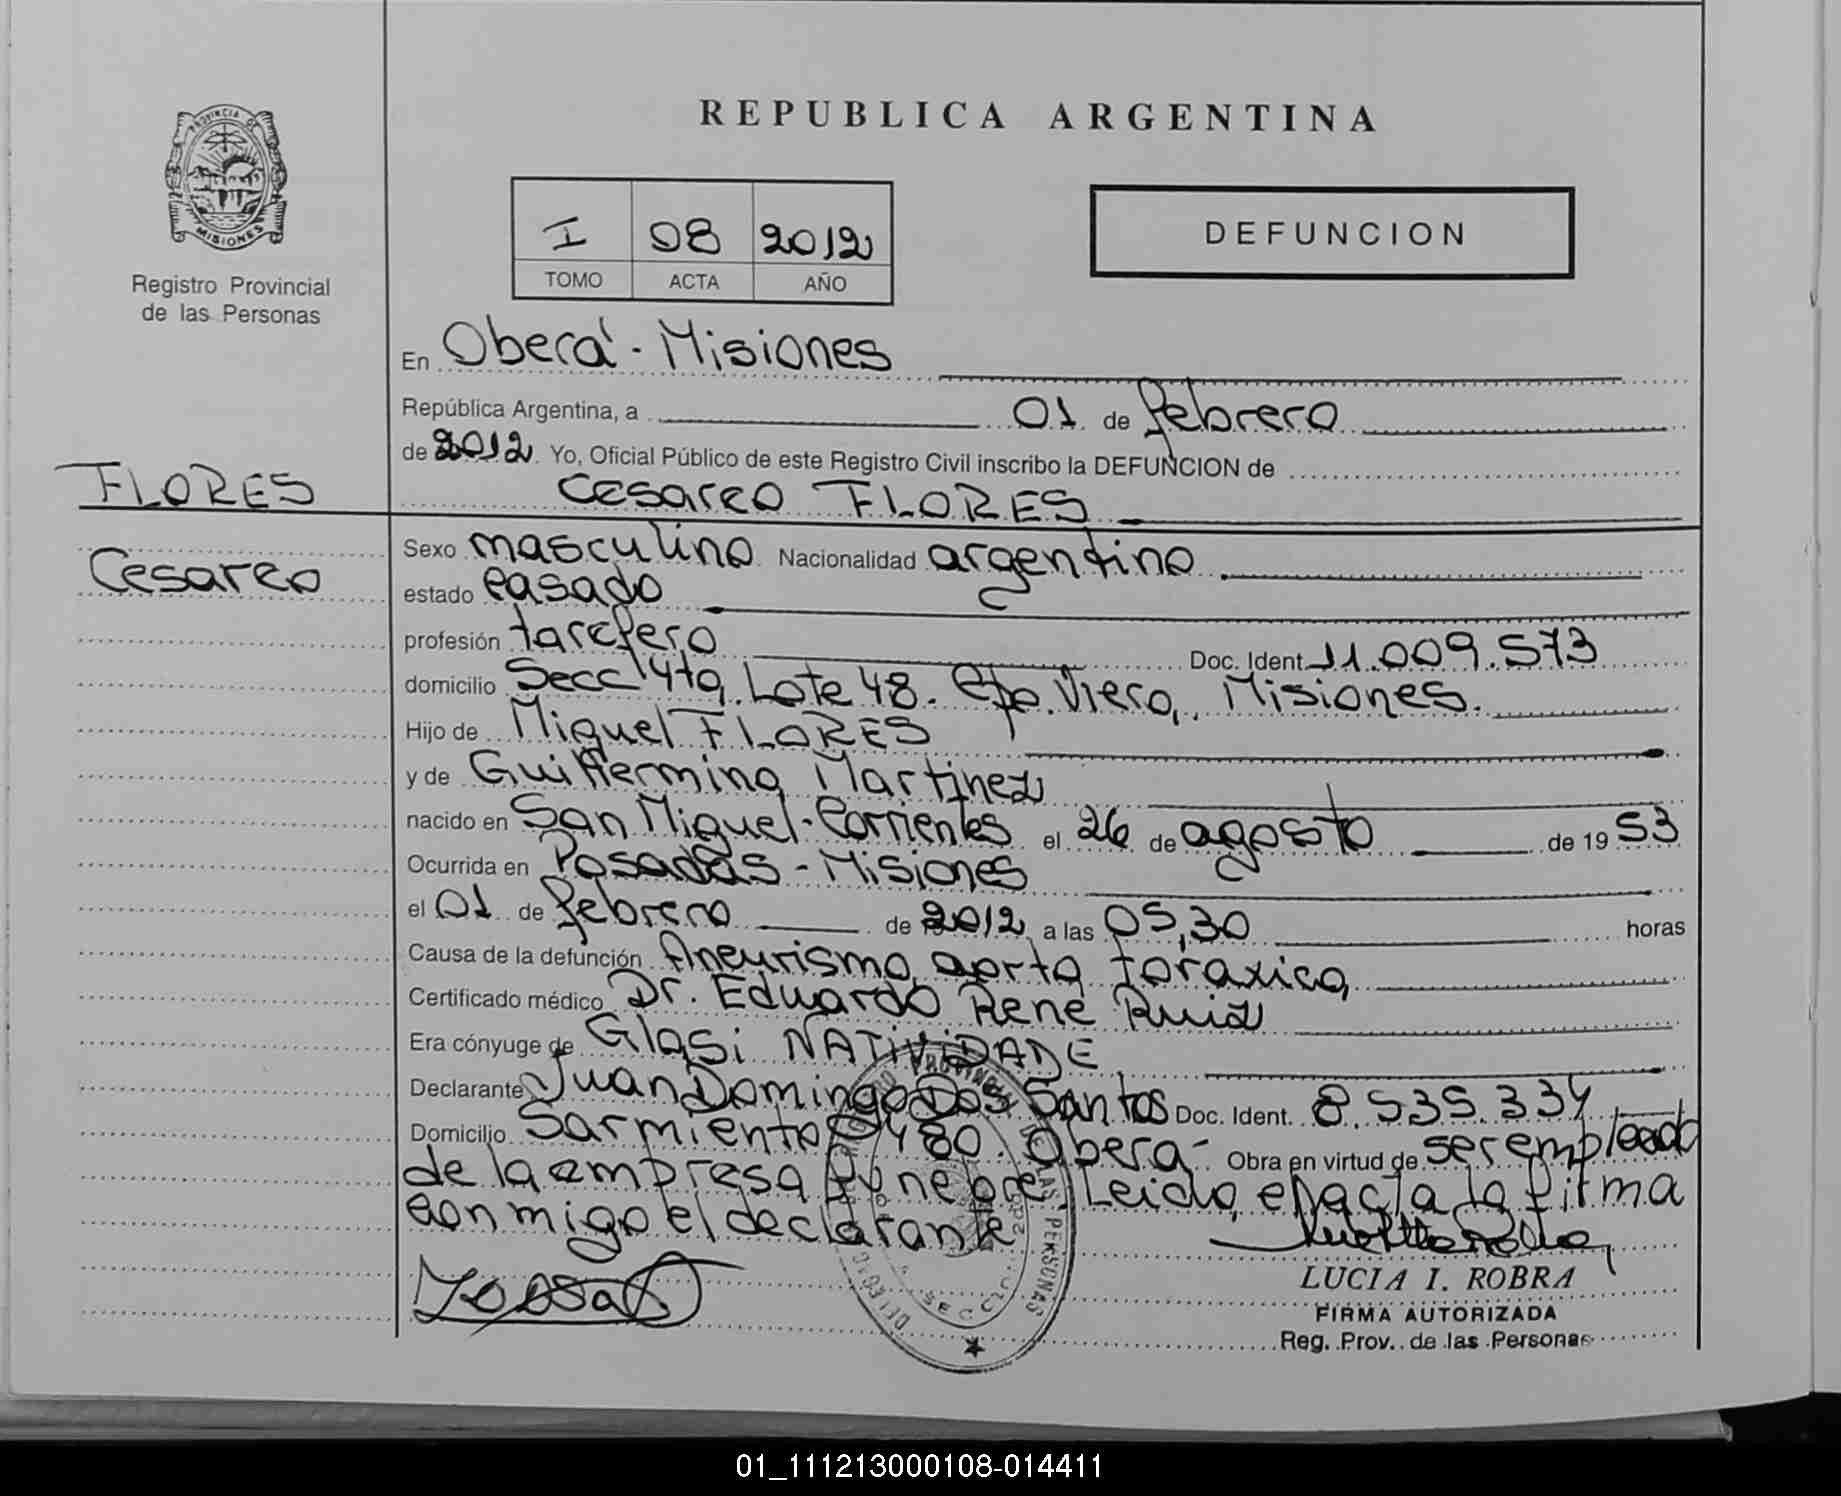 REPUBLICA ARGENTINA
PROVINCIA DE
MISIONES
Registro Provincial
de las Personas
I 08 2012
TOMO ACTA AÑO
DEFUNCION
En Oberá - Misiones
República Argentina, a 01 de febrero
de 2012 Yo, Oficial Público de este Registro Civil inscribo la DEFUNCION de
FLORES
Cesareo FLORES
Cesareo
Sexo masculino Nacionalidad argentino
estado casado
profesión tarefero Doc. Ident. 11.009.573
domicilio Secc 4ta, Lote 48. Cpo. Viera, Misiones.
Hijo de Miguel FLORES
y de Guillermina Martinez
nacido en San Miguel-Corrientes el 26 de agosto de 1953
Ocurrida en Posadas - Misiones
el 01 de febrero de 2012 a las 05,30 horas
Causa de la defunción Aneurisma aorta toraxica
Certificado médico Dr. Eduardo René Ruiz
Era cónyuge de Glasi NATIVIDADE
Declarante Juan Domingo Dos Santos Doc. Ident. 8.535.334
Domicilio Sarmiento 480. Oberá- Obra en virtud de ser empleado
de la empresa funebre. Leida el acta la firma
conmigo el declarante
LUCIA I. ROBRA
FIRMA AUTORIZADA
Reg. Prov. de las Personas
01_111213000108-014411